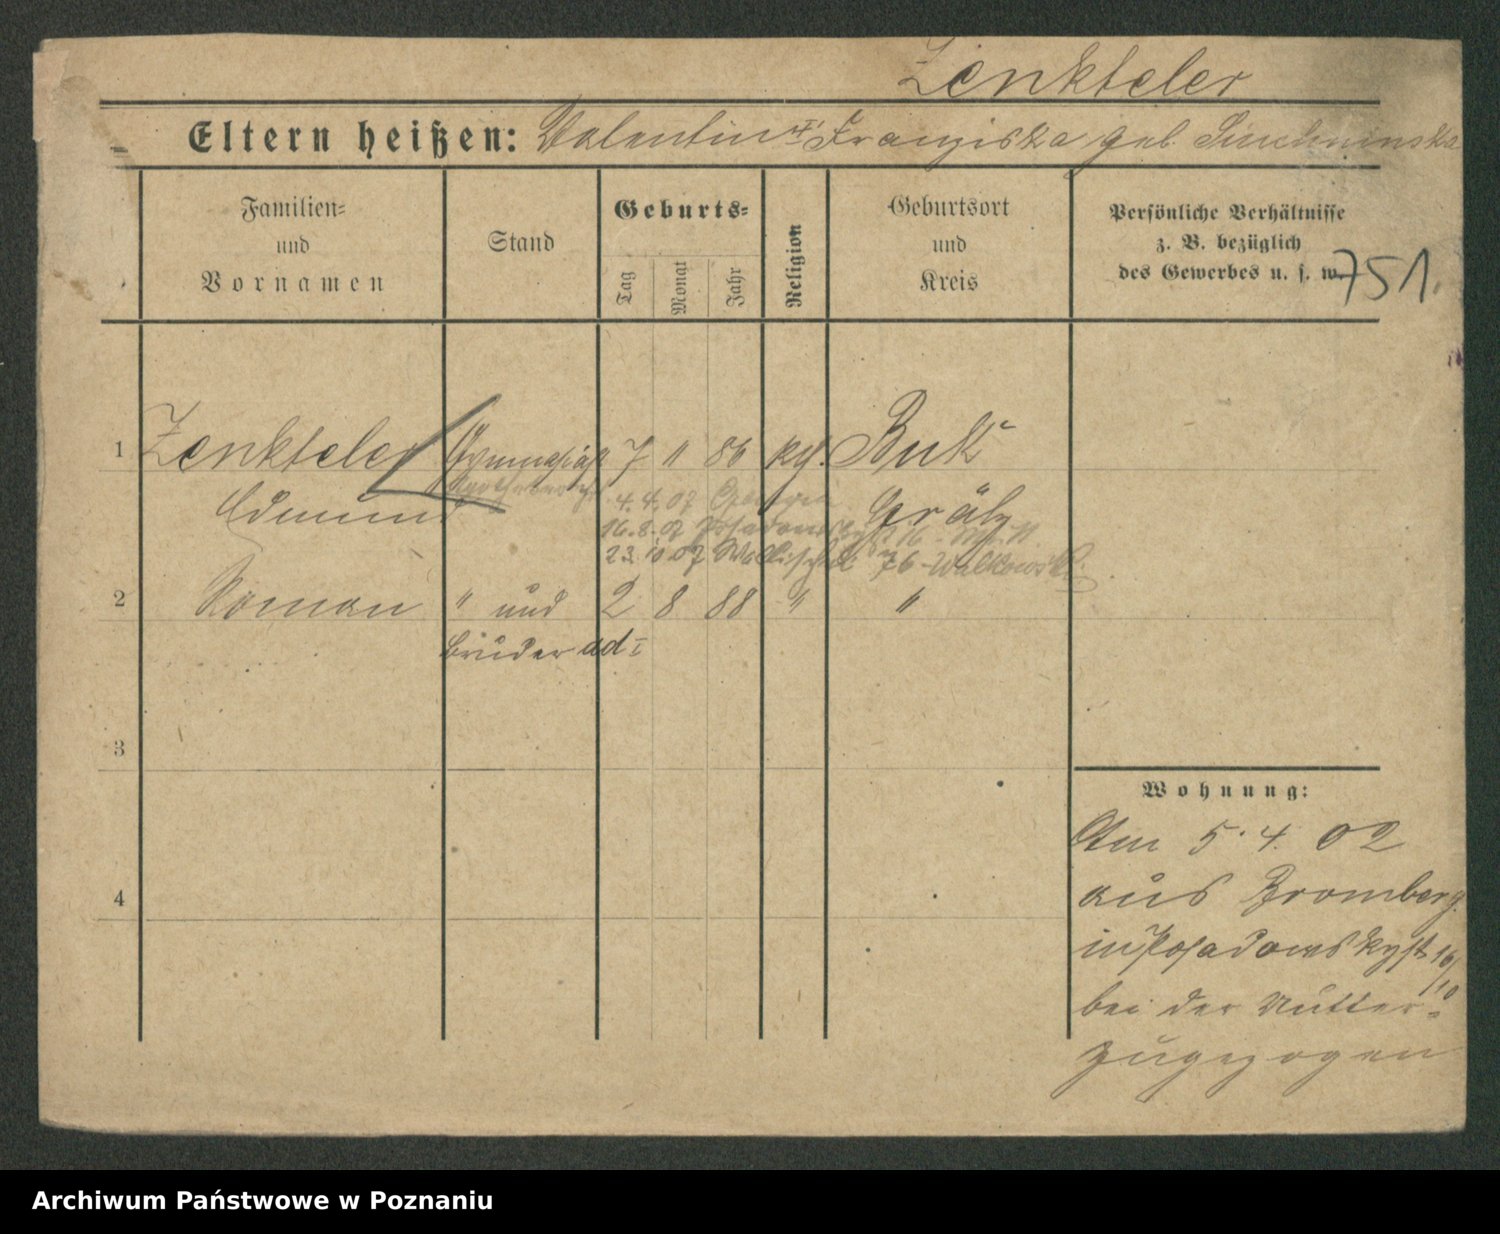 Zenkteler
Eltern heißen: Valentin u. Franziska geb.
Familien-
und
Vornamen
Stand
Geburts-
Tag
Monat
Jahr
Religion
Geburtsort
und
Kreis
Persönliche Verhältnisse
z. B. bezüglich
des Gewerbes u. s. w.
751.
1 Zenkteler Gymnasiast 7 " 86 kth. Buk
Edmund Grätz
4. 4. 07
16. 8. 07
23 10 07 Wallischei 76 Walkowski
2 Roman " und 2 8 88 " "
Bruder ad I
3
4
Wohnung:
Am 5. 4. 02
aus Bromberg
in Posadowskystr 16/10
bei der Mutter
zugezogen
Archiwum Państwowe w Poznaniu